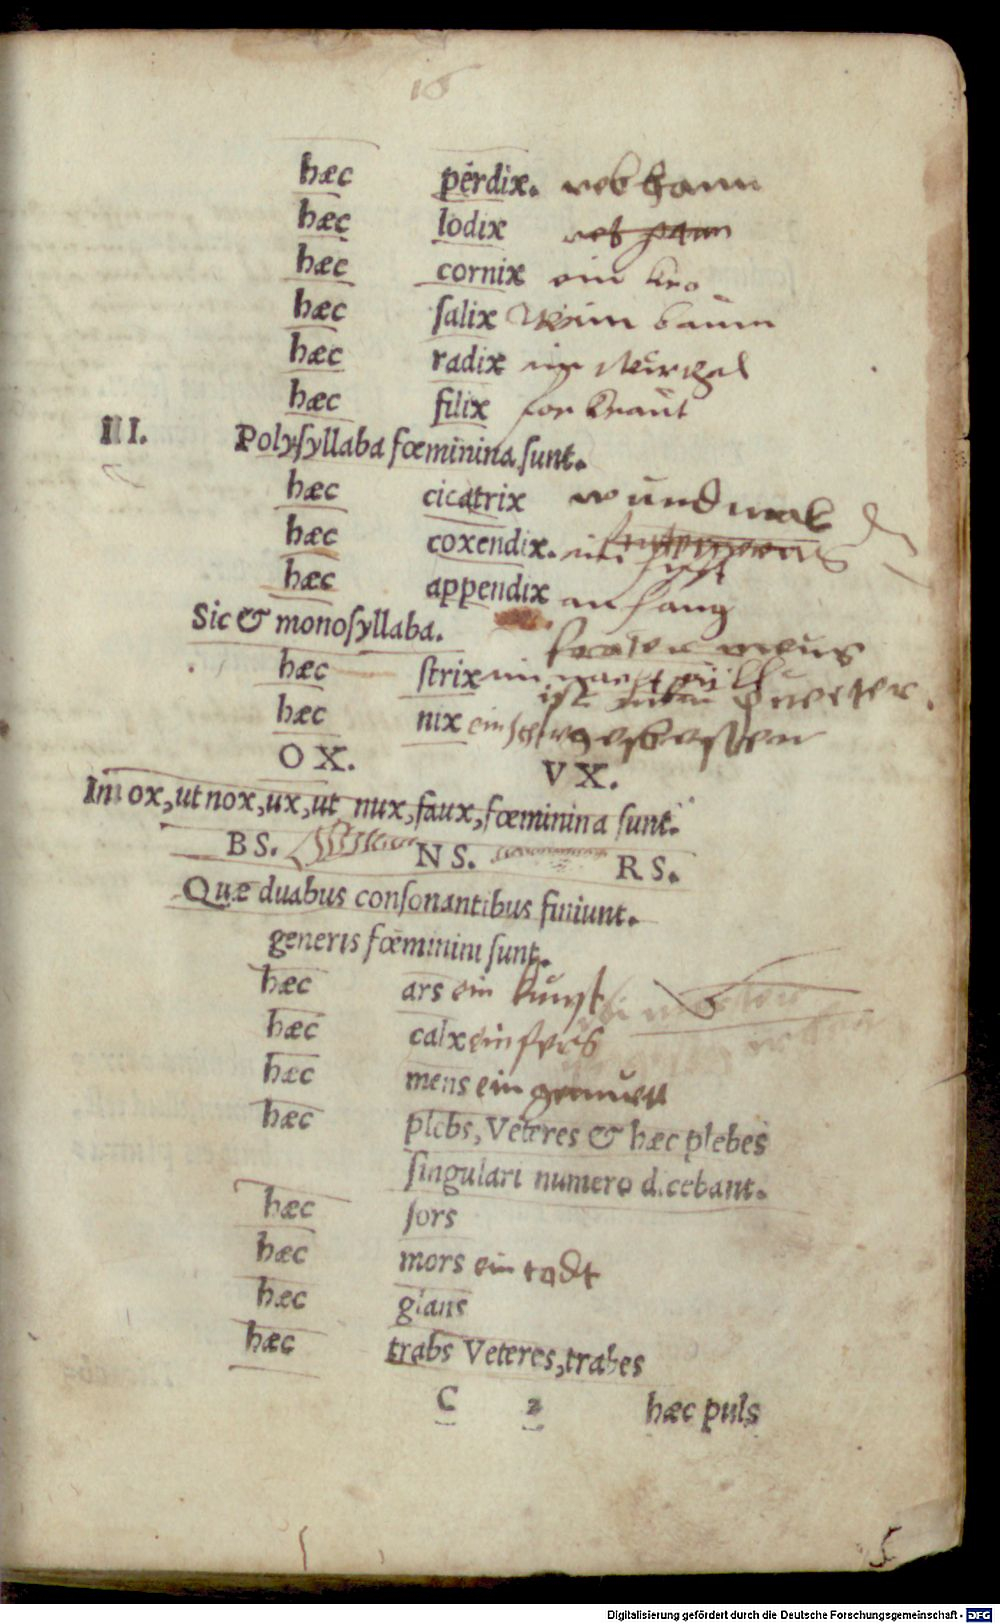 16
hæc perdix. rebhann
hæc lodix
hæc cornix ein kro
hæc ſalix baum
hæc radix
hæc filix for kraut
III. Polyſyllaba fœminina ſunt.
hæc cicatrix wundmal
hæc coxendix.
hæc appendix anhang
Sic & monoſyllaba.
frater meus
hæc ſtrix
iſt
hæc nix ein ſch
O X. V X.
In ox, ut nox, ux, ut nux, faux, fœminina ſunt.
B S. N S. R S.
Quæ duabus conſonantibus finiunt.
generis fœminini ſunt.
hæc ars ein kunſt
hæc calx ein fers
hæc mens ein gemuett
hæc plebs, Veteres & hæc plebes
ſingulari numero dicebant.
hæc ſors
hæc mors ein todt
hæc glans
hæc trabs Veteres, trabes
C 2 hæc puls
Digitalisierung gefördert durch die Deutsche Forschungsgemeinschaft - DFG